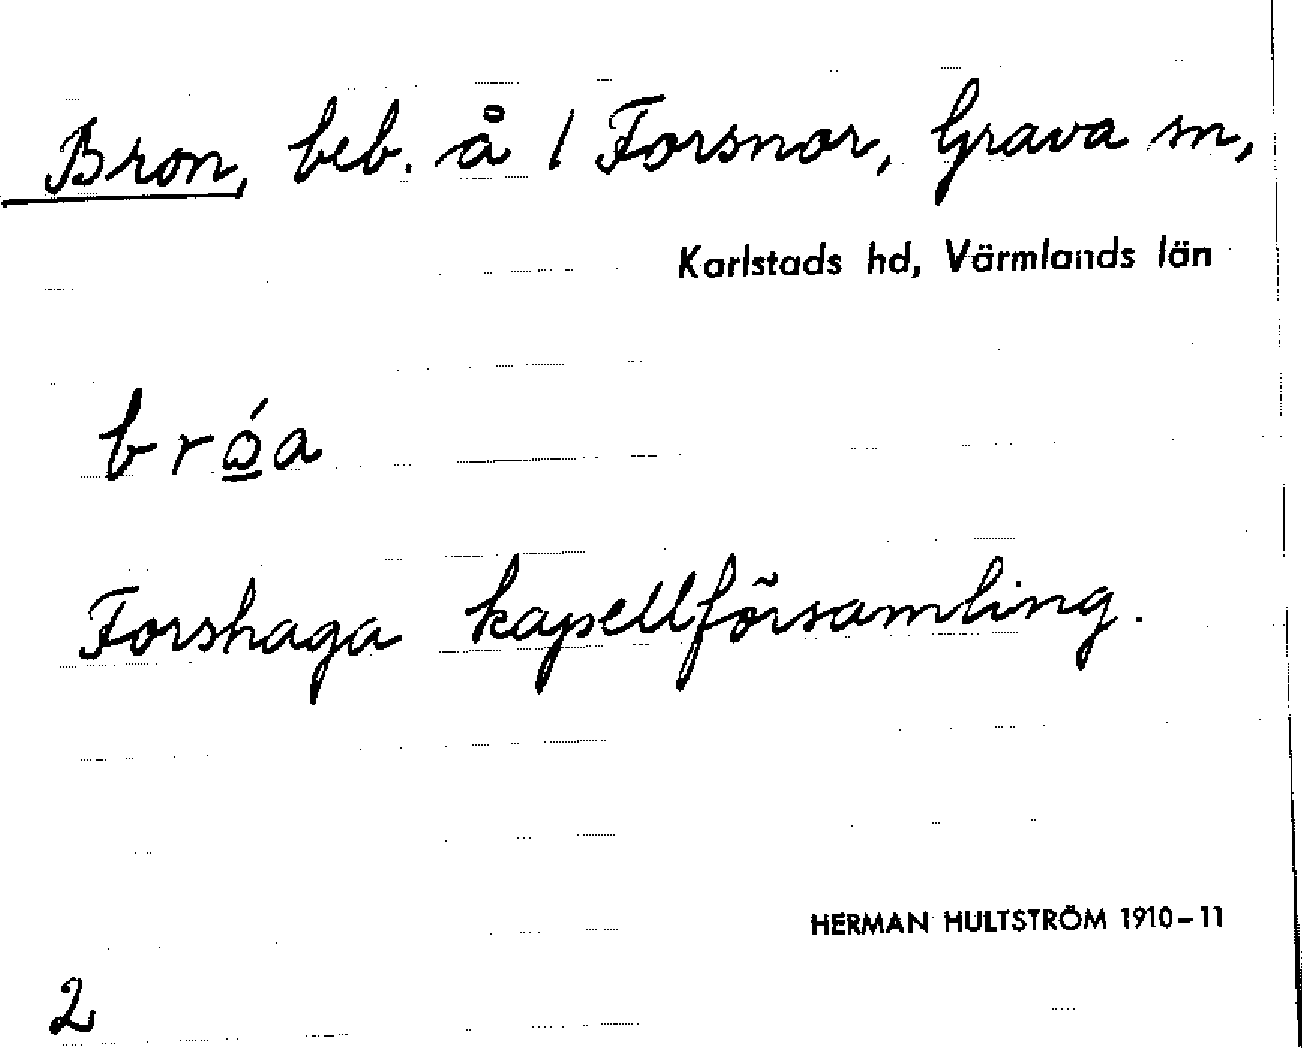 Bron, beb. å 1 Forsnor, Grava sn,
Karlstads hd, Värmlands län
bró̲a
Forshaga kapellförsamling.
HERMAN HULTSTRÖM 1910-11
2